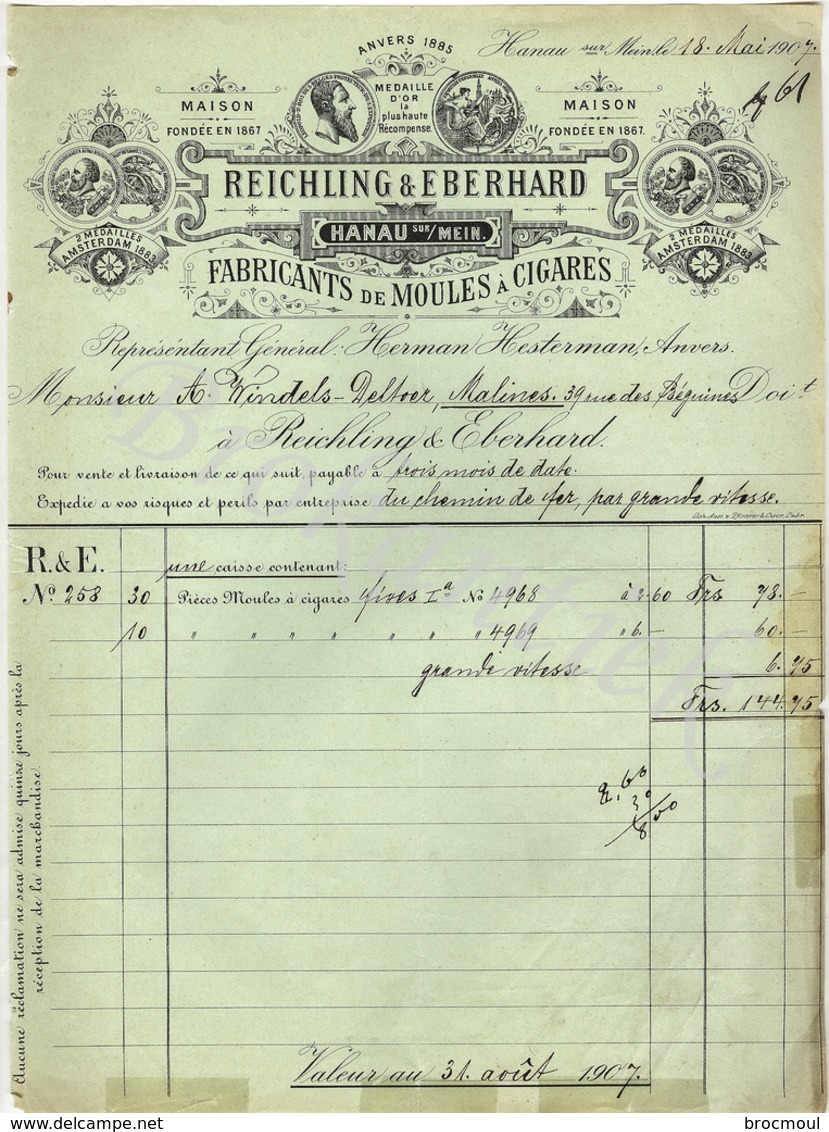 ANVERS 1885
Hanau sur Mein le 18. Mai 1907.
61
MAISON
FONDÉE EN 1867
MEDAILLE
D'OR
la
plus haute
Récompense.
MAISON
FONDÉE EN 1867.
REICHLING & EBERHARD
HANAU SUR/MEIN.
2 MEDAILLES
AMSTERDAM 1883
2 MEDAILLES
AMSTERDAM 1883
FABRICANTS DE MOULES À CIGARES
Représéntant Général: Herman Hesterman, Anvers.
Monsieur A. Windels-Deltoer, Malines. 39 rue des Béguines Doit
à Reichling & Eberhard.
Pour vente et livraison de ce qui suit, payable à trois mois de date.
Expedie a vos risques et perils par entreprise du chemin de fer, par grande vitesse.
R. & E. une caisse contenant:
No. 258 30 Pièces Moules à cigares fives Ia No 4968 à 2.60 Frs 78.-
10 " " " " " " " " 4969 " 6.- 60.-
grande vitesse 6.75
Frs. 144.75
2.60
30
Valeur au 31. août 1907.
Aucune réclamation ne sera admise quinze jours après la
réception de la marchandise.
brocmoul